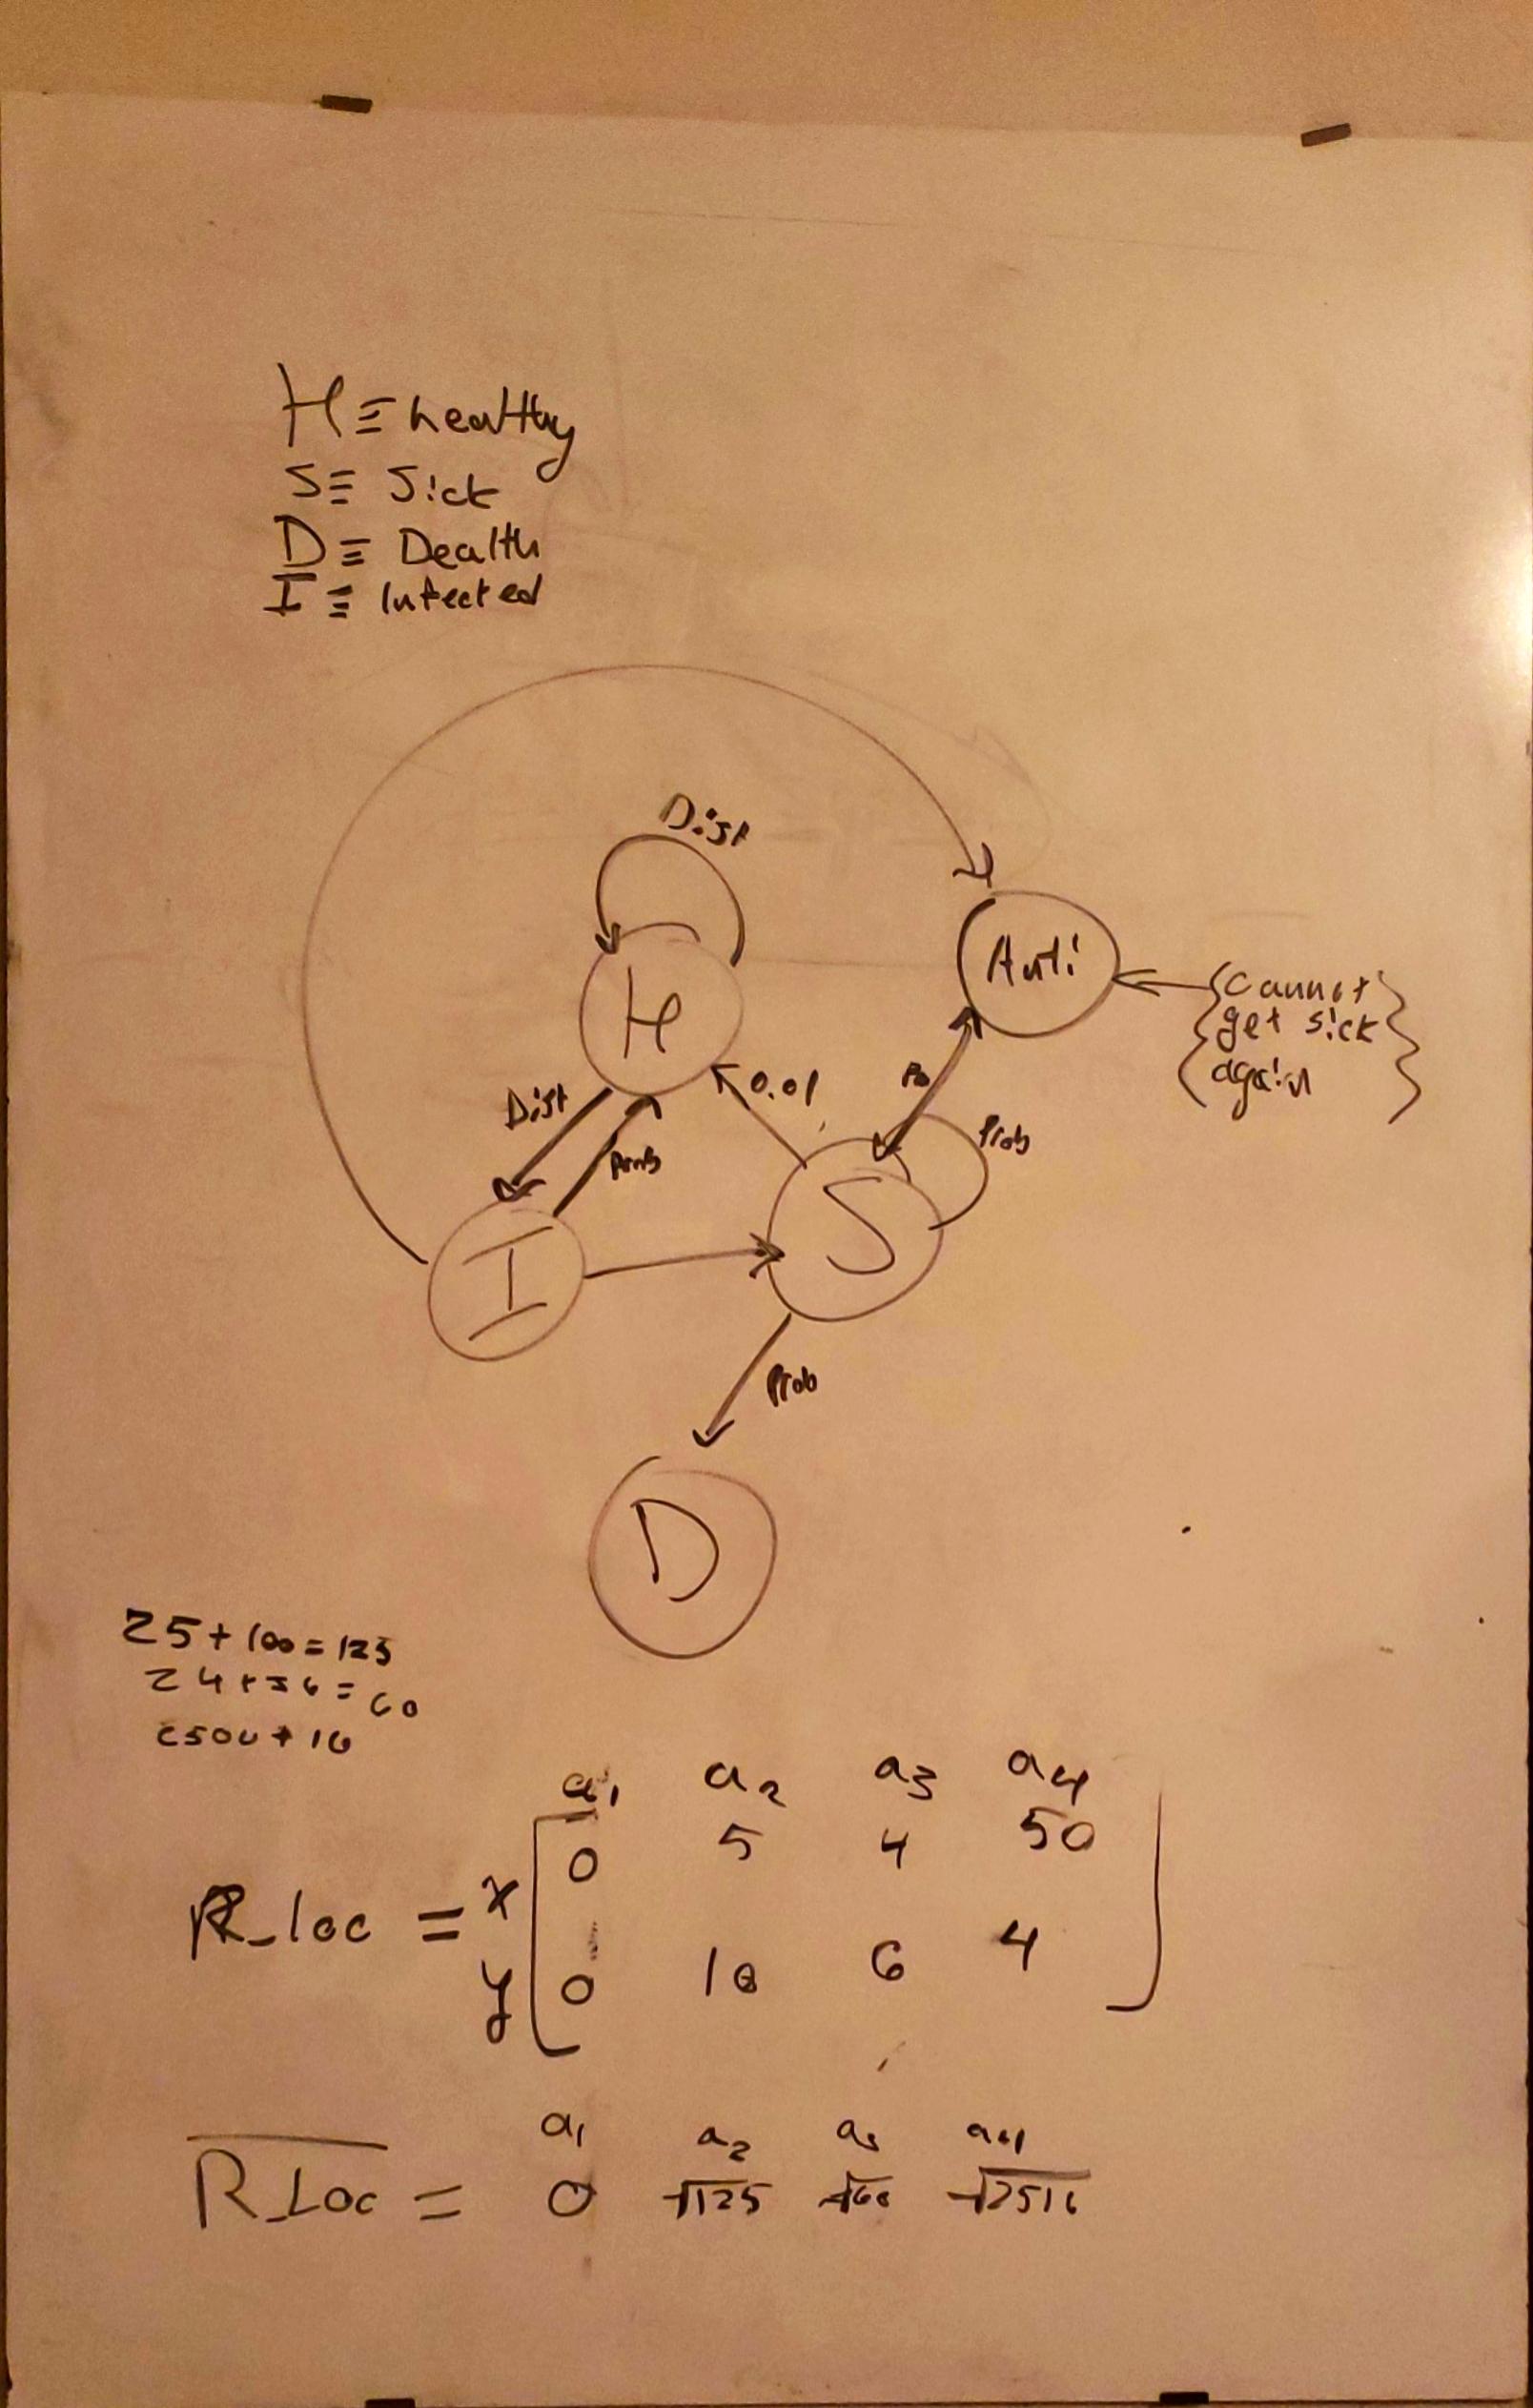 H ≡ healthy
S ≡ Sick
D ≡ Dealth
I ≡ Infected
Dist
H
Anti
{cannot
get sick
again}
Dist
Prob
0.01
Prob
I
S
Prob
D
25 + 100 = 125
24 + 36 = 60
2500 + 16
a1 a2 a3 a4
R_loc = x [0 5 4 50
y 0 10 6 4]
a1 a2 a3 a4
R_Loc = 0 √125 √60 √2516